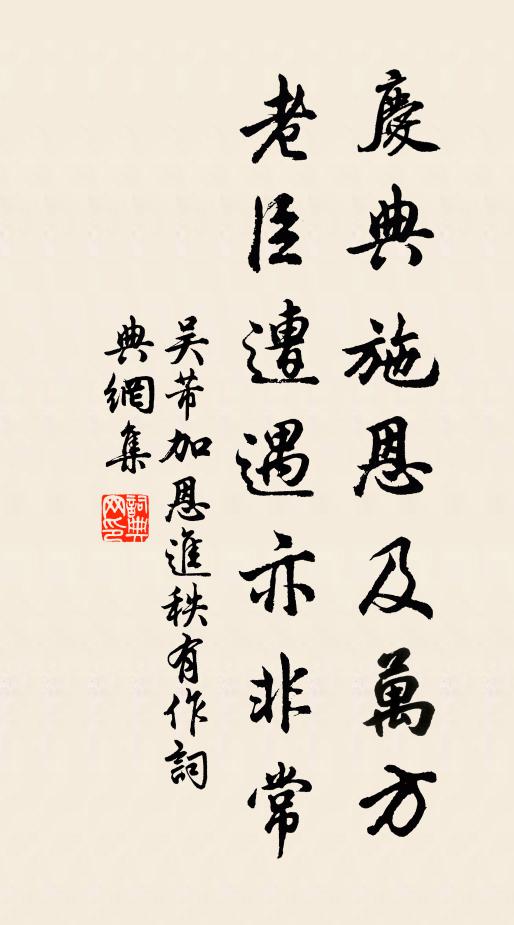 慶典施恩及萬方
老臣遭遇亦非常
吴芾加恩進秩有作詞
典網集
詞典網印